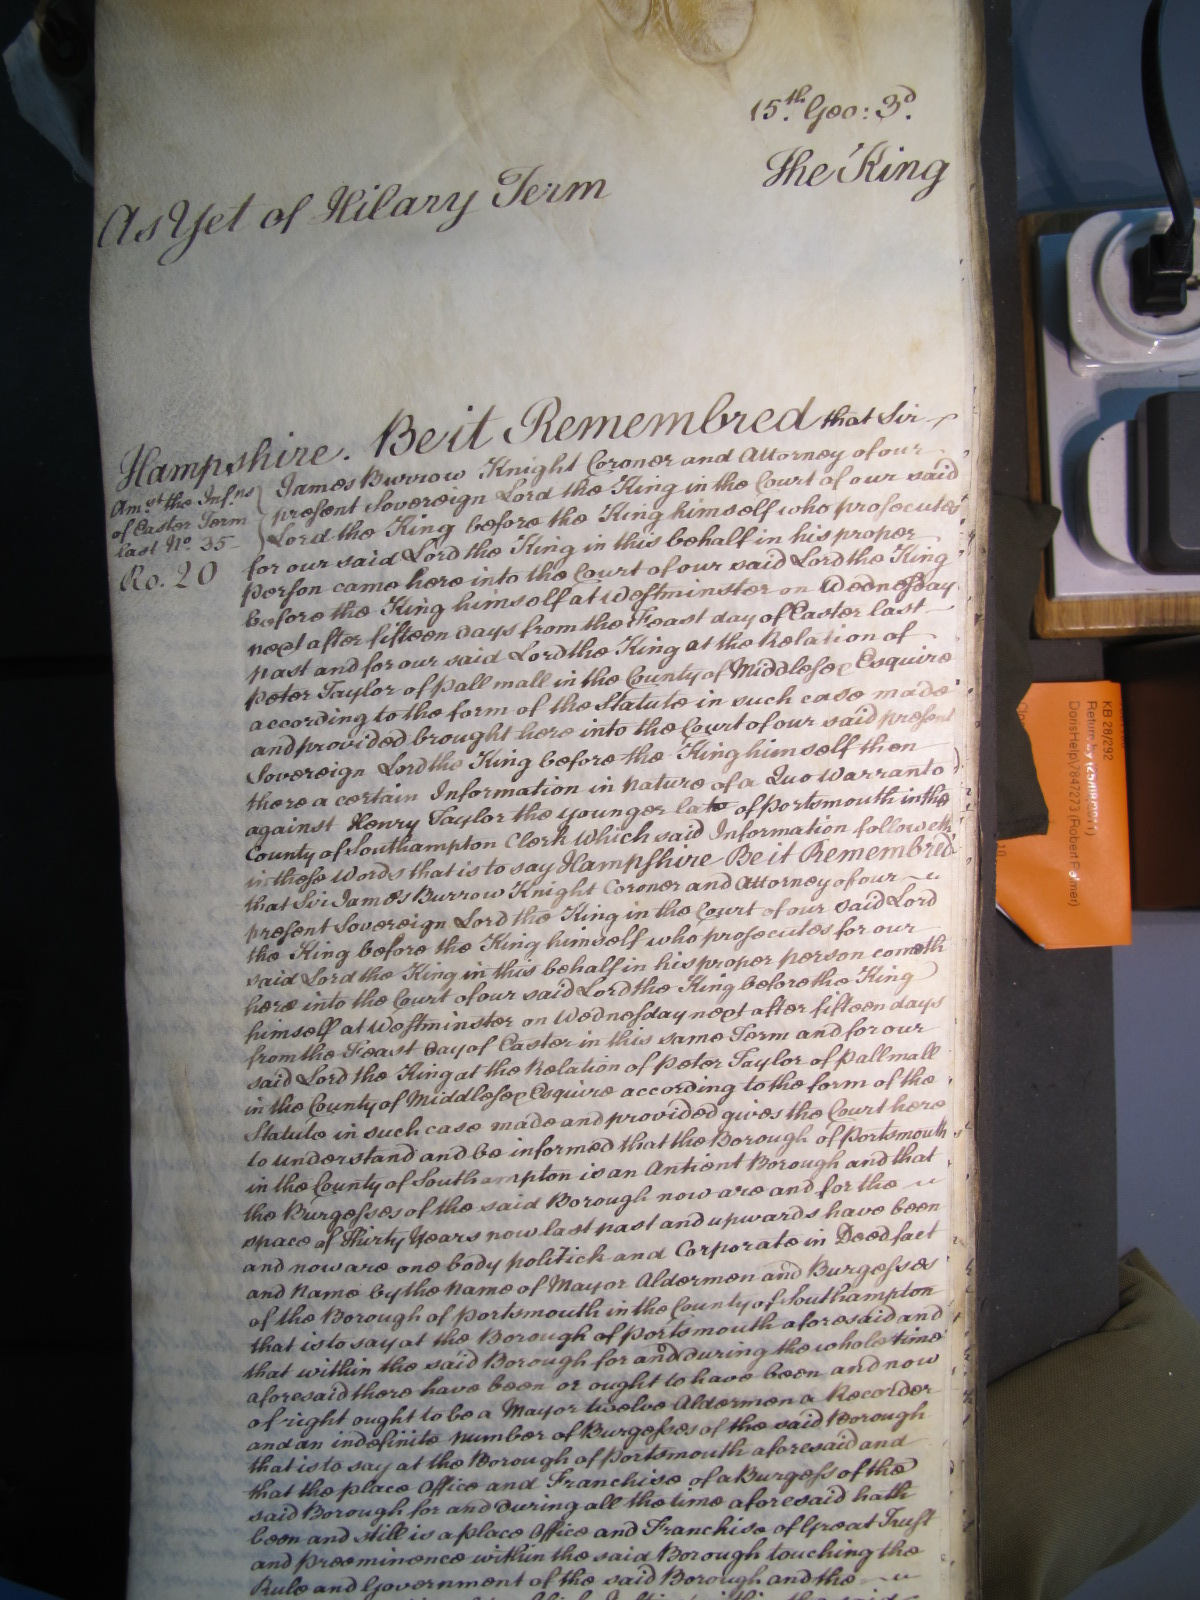 15.th Geo: 3d.
As Yet of Hilary Term
The King
Hampshire. Be it Remembred that Sir
Amst. the Infns
of Easter Term
last No. 35
Ro. 20
James Burrow Knight Coroner and Attorney of our
present Sovereign Lord the King in the Court of our said
Lord the King before the King himself who prosecutes
for our said Lord the King in this behalf in his proper
person came here into the Court of our said Lord the King
before the King himself at Westminster on Wednesday
next after fifteen days from the Feast day of Easter last
past and for our said Lord the King at the Relation of
Peter Taylor of Pall mall in the County of Middlesex Esquire
according to the form of the Statute in such case made
and provided brought here into the Court of our said present
Sovereign Lord the King before the King himself then
there a certain Information in nature of a Quo Warranto
against Henry Taylor the younger late of Portsmouth in the
County of Southampton Clerk Which said Information followeth
in these words that is to say Hampshire Be it Remembred
that Sir James Burrow Knight Coroner and Attorney of our
present Sovereign Lord the King in the Court of our said Lord
the King before the King himself who prosecutes for our
said Lord the King in this behalf in his proper person cometh
here into the Court of our said Lord the King before the King
himself at Westminster on Wednesday next after fifteen days
from the Feast Day of Easter in this same Term and for our
said Lord the King at the Relation of Peter Taylor of Pallmall
in the County of Middlesex Esquire according to the form of the
Statute in such case made and provided gives the Court here
to understand and be informed that the Borough of Portsmouth
in the County of Southampton is an Antient Borough and that
the Burgesses of the said Borough now are and for the
space of Thirty Years now last past and upwards have been
and now are one body politick and Corporate in Deed fact
and Name by the Name of Mayor Aldermen and Burgesses
of the Borough of Portsmouth in the County of Southampton
that is to say at the Borough of Portsmouth aforesaid and
that within the said Borough for and during the whole time
aforesaid there have been or ought to have been and now
of right ought to be a Mayor twelve Aldermen a Recorder
and an indefinite number of Burgesses of the said Borough
that is to say at the Borough of Portsmouth aforesaid and
that the place Office and Franchise of a Burgess of the
said Borough for and during all the time aforesaid hath
been and still is a place Office and Franchise of Great Trust
and Preeminence within the said Borough touching the
Rule and Government of the said Borough and the
KB 28/292
DorisHelp\/847273 (Robert Palmer)